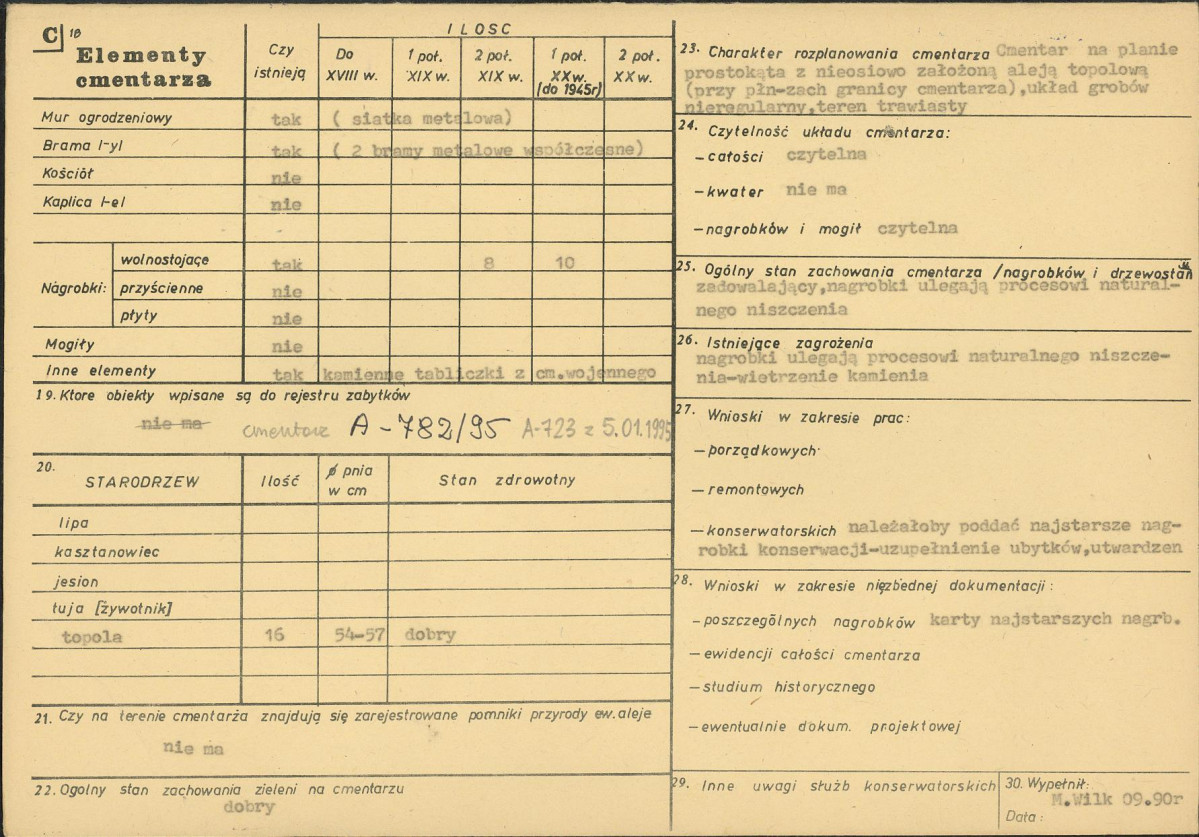 C 18 Elementy cmentarza
Czy istnieją
ILOSC
Do XVIII w.
1 poł. XIX w.
2 poł. XIX w.
1 poł. XX w. (do 1945r)
2 poł. XX w.
Mur ogrodzeniowy tak ( siatka metalowa)
Brama /-y/ tak ( 2 bramy metalowe współczesne)
Kościół nie
Kaplica /-e/ nie
Nagrobki:
wolnostojące tak 8 10
przyścienne nie
płyty nie
Mogiły nie
Inne elementy tak kamienne tabliczki z cm.wojennego
19. Ktore obiekty wpisane są do rejestru zabytków
nie ma cmentarz A-782/95 A-723 z 5.01.1995
20. STARODRZEW Ilość ø pnia w cm Stan zdrowotny
lipa
kasztanowiec
jesion
tuja [żywotnik]
topola 16 54-57 dobry
21. Czy na terenie cmentarża znajdują się zarejestrowane pomniki przyrody ew. aleje
nie ma
22. Ogolny stan zachowania zieleni na cmentarzu
dobry
23. Charakter rozplanowania cmentarza Cmentar na planie
prostokąta z nieosiowo założoną aleją topolową
(przy płn-zach granicy cmentarza),układ grobów
nieregularny,teren trawiasty
24. Czytelność układu cmentarza:
-całości czytelna
-kwater nie ma
-nagrobków i mogił czytelna
25. Ogólny stan zachowania cmentarza /nagrobków i drzewostan
zadowalający,nagrobki ulegają procesowi natural-
nego niszczenia
26. Istniejące zagrożenia
nagrobki ulegają procesowi naturalnego niszcze-
nia-wietrzenie kamienia
27. Wnioski w zakresie prac:
-porządkowych
-remontowych
-konserwatorskich należałoby poddać najstarsze nag-
robki konserwacji-uzupełnienie ubytków,utwardzen
28. Wnioski w zakresie niezbędnej dokumentacji:
-poszczególnych nagrobków karty najstarszych nagrb.
-ewidencji całości cmentarza
-studium historycznego
-ewentualnie dokum. projektowej
29. Inne uwagi służb konserwatorskich
30. Wypełnił:
M.Wilk 09.90r
Data: